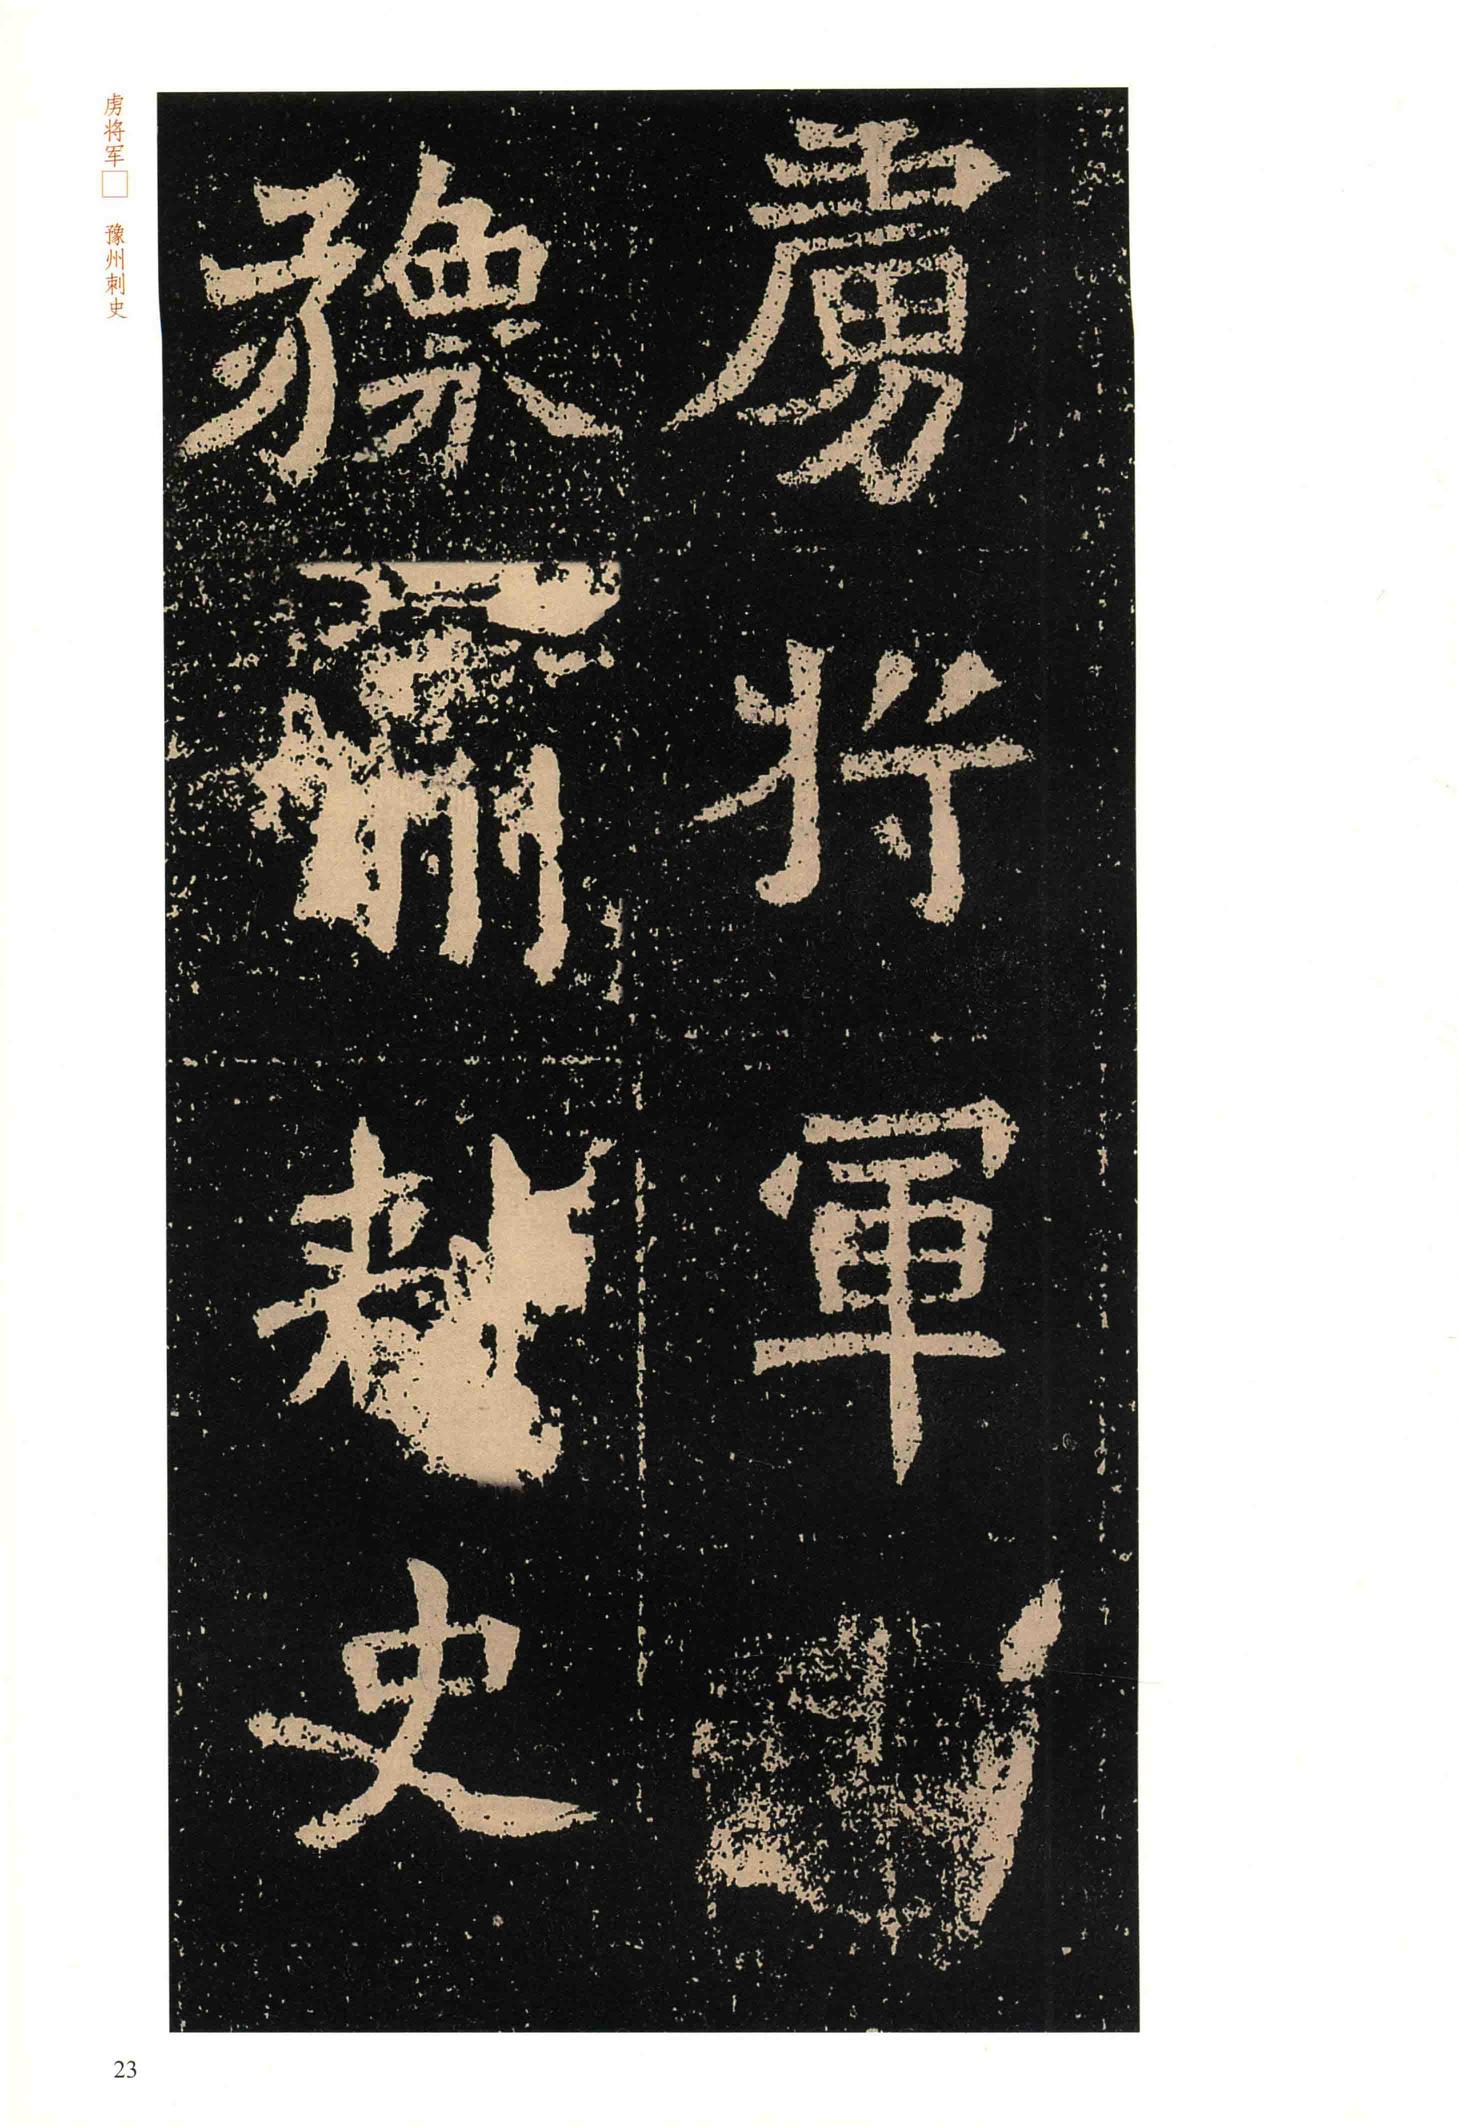 虏将军□ 豫州刺史
虜將軍
豫州刺史
23